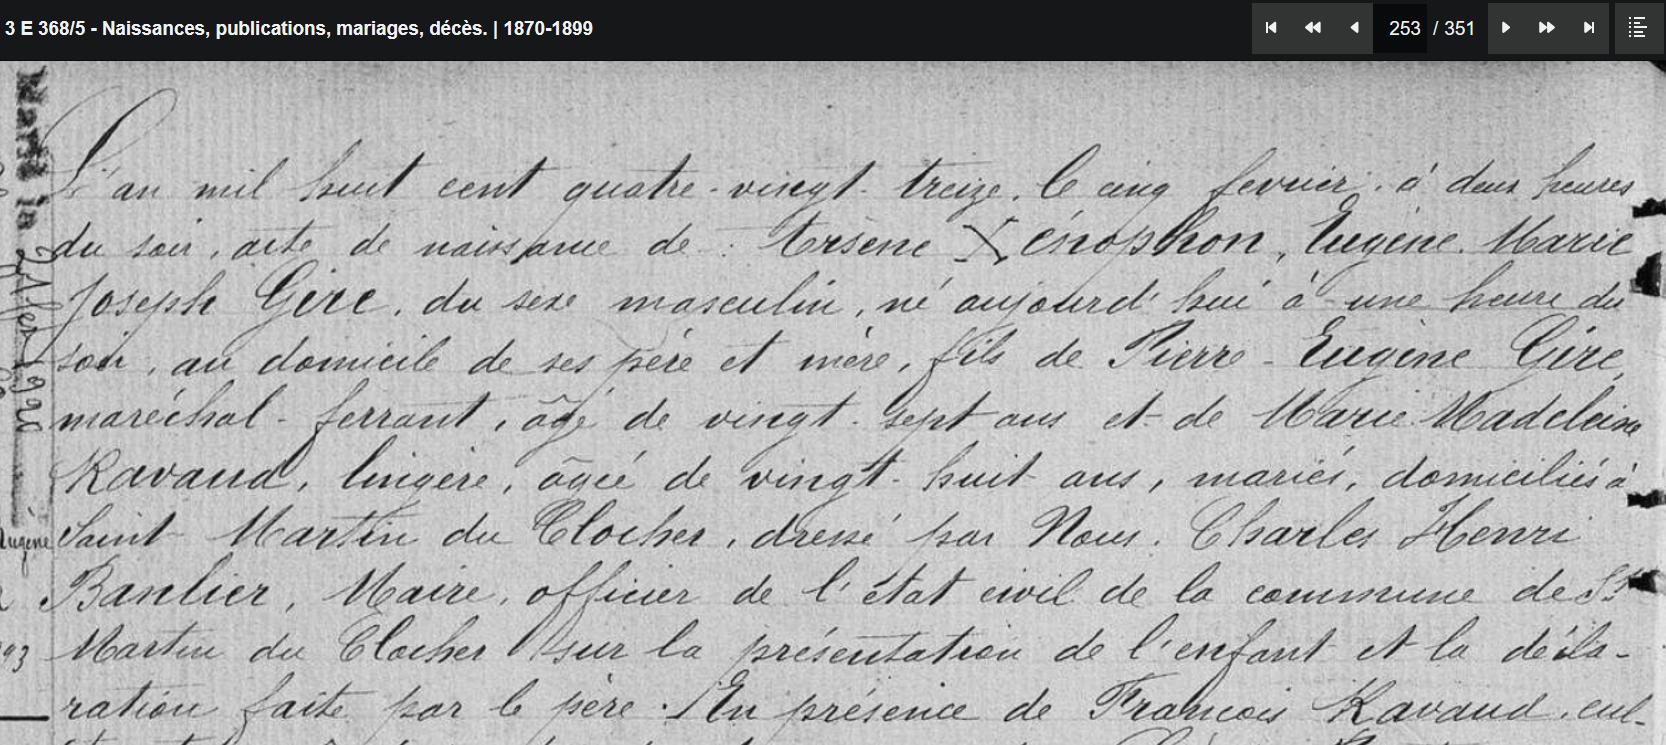 3 E 368/5 - Naissances, publications, mariages, décès. | 1870-1899
253 / 351
L'an mil huit cent quatre-vingt-treize, le cinq fevrier, à deux heures
du soir, acte de naissance de Arsène Xénophon, Eugène Marie
Joseph Gire, du sexe masculin, né aujourd'hui à une heure du
soir, au domicile de ses père et mère, fils de Pierre-Eugène Gire,
maréchal-ferrant, âgé de vingt-sept ans et de Marie Madeleine
Ravaud, lingère, âgée de vingt-huit ans, mariés, domiciliés à
Saint Martin du Clocher, dressé par Nous, Charles Henri
Banlier, Maire, officier de l'état civil de la commune de St
Martin du Clocher sur la présentation de l'enfant et la décla-
ration faite par le père. En présence de François Ravaud, cul-
Eugène
93